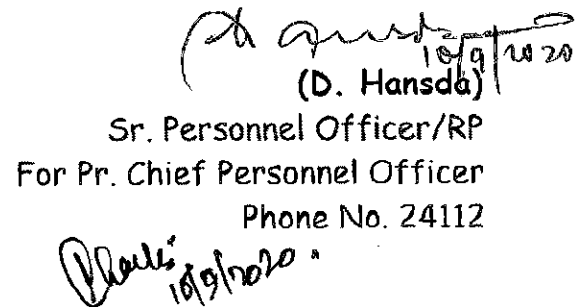 10/9/2020
(D. Hansda)
Sr. Personnel Officer/RP
For Pr. Chief Personnel Officer
Phone No. 24112
10/9/2020